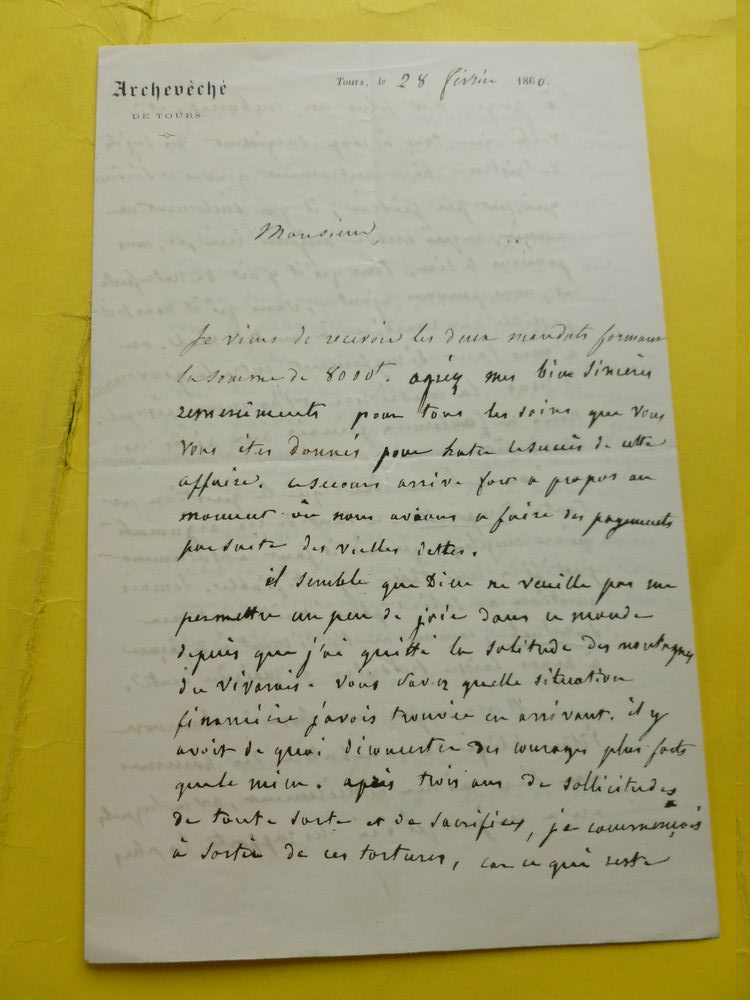 Archevêché
DE TOURS.
Tours, le 28 février 1860.
Monsieur,
Je viens de recevoir les deux mandats formant
la somme de 8000f. agréez mes bien sincères
remerciements pour tous les soins que vous
vous êtes donnés pour hater le succès de cette
affaire. ce secours arrive fort a propos au
moment où nous avions a faire des payements
par suite des vielles dettes.
il semble que Dieu ne veuille pas me
permettre un peu de joie dans ce monde
depuis que j'ai quitté la solitude des montagnes
du vivarais. vous savez quelle situation
financière j'avois trouvée en arrivant. il y
avoit de quoi déconcerter des courages plus forts
que le mien. après trois ans de sollicitudes
de toute sorte et de sacrifices, je commençois
à sortir de ces tortures, car ce qui reste